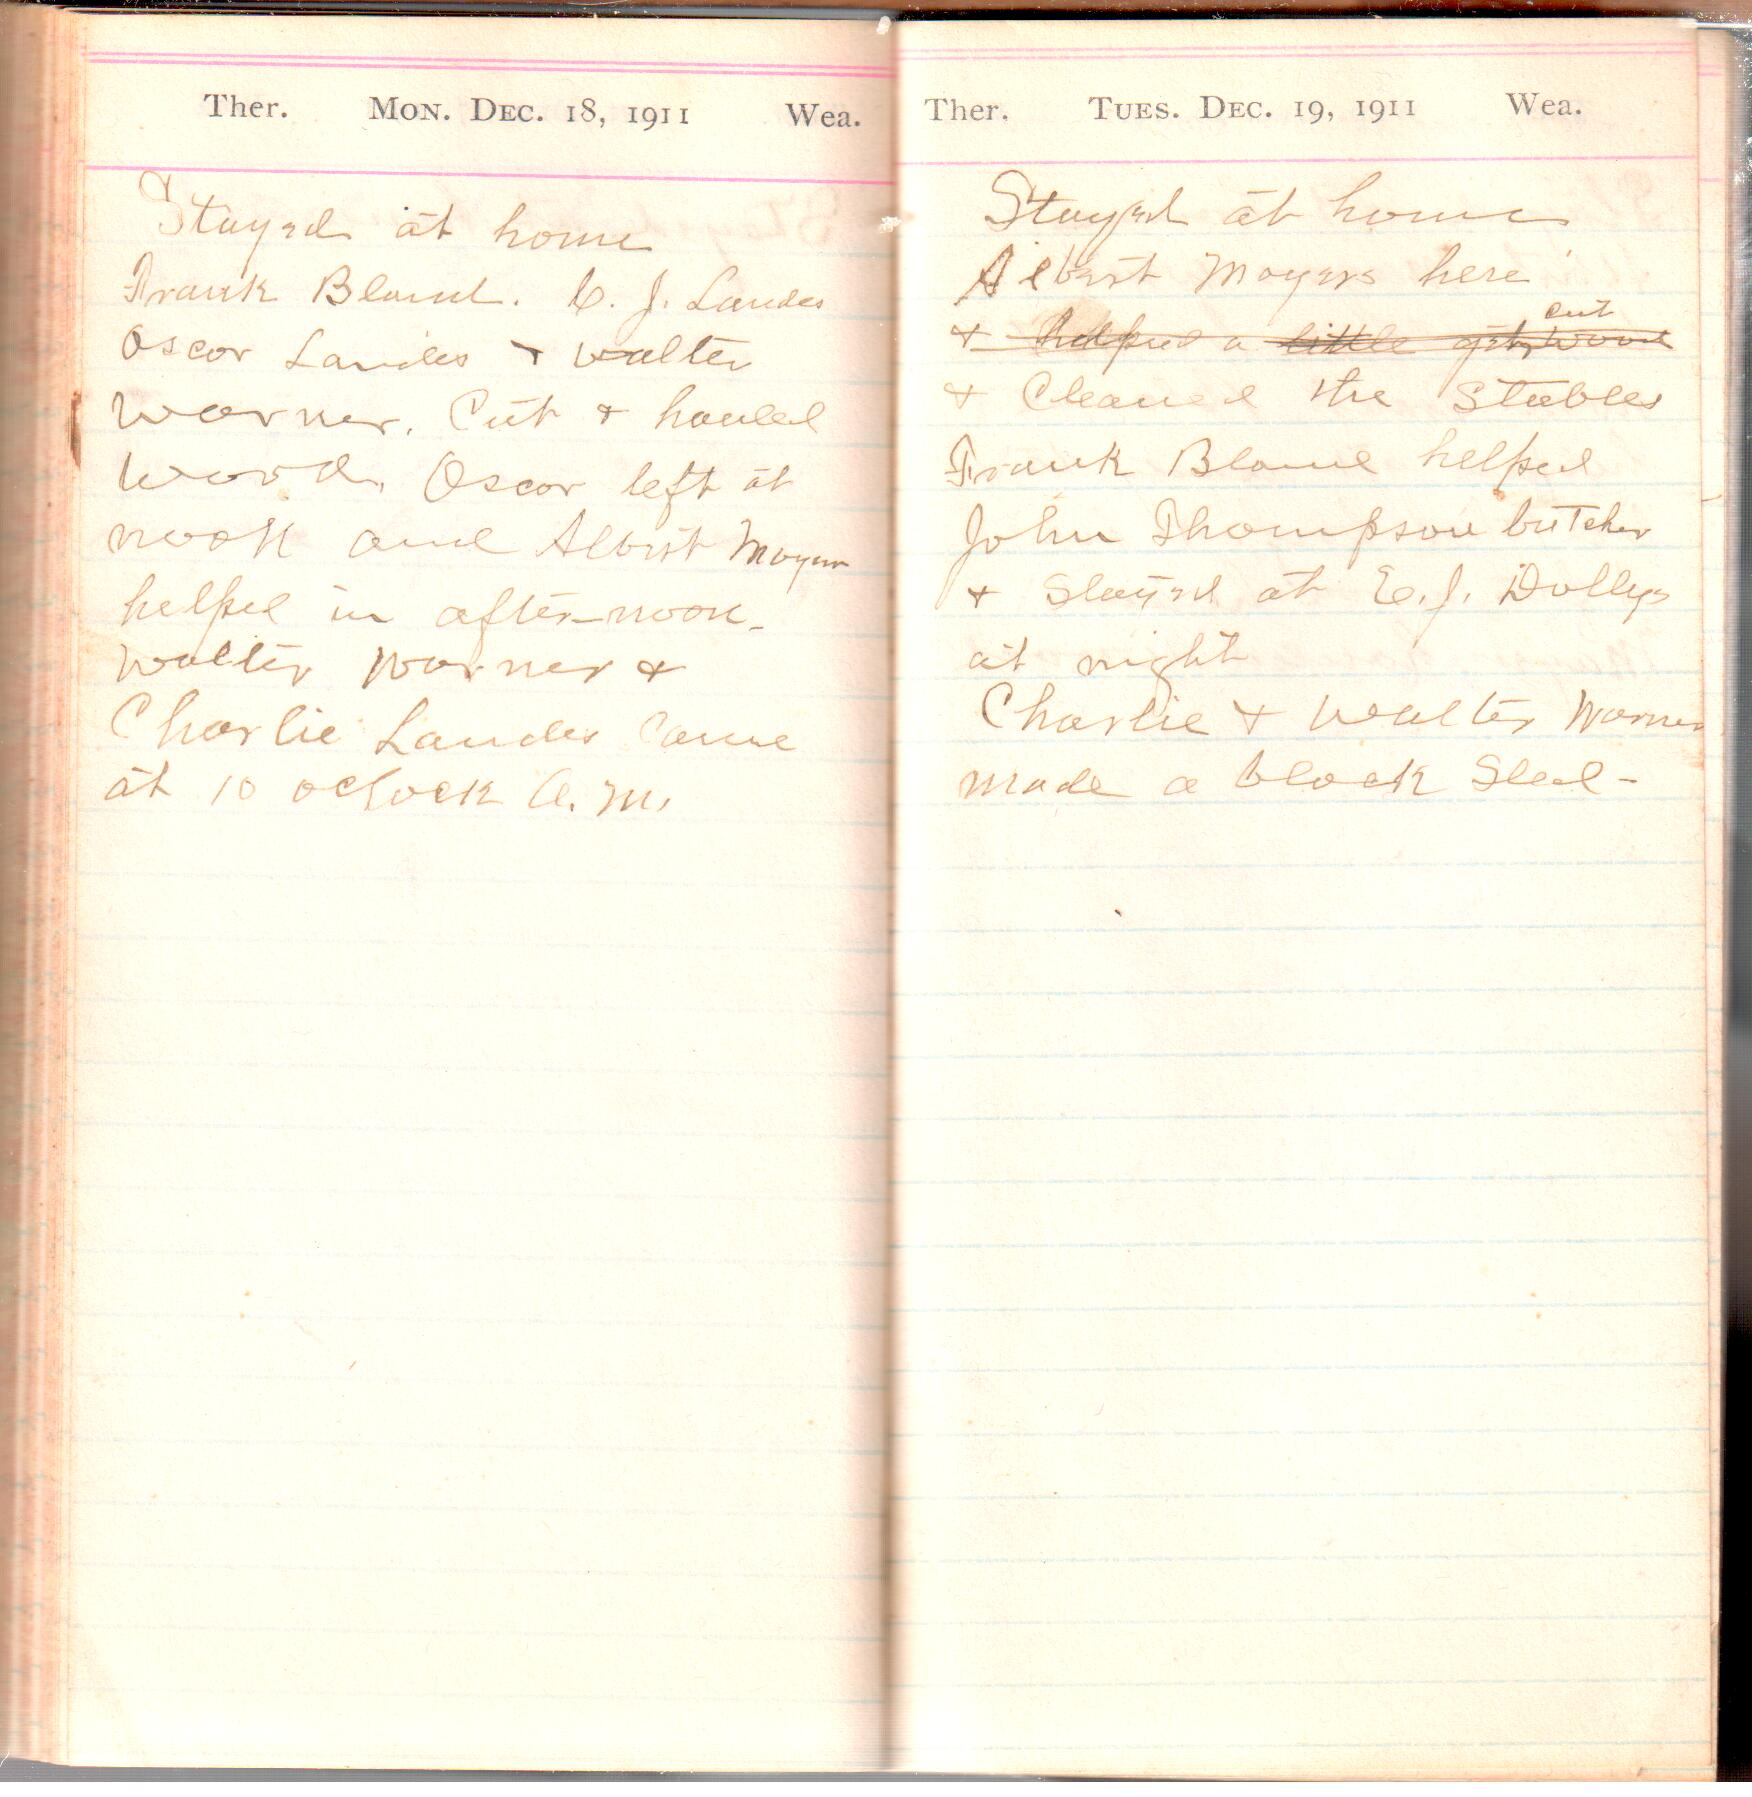 Ther. Mon. Dec. 18, 1911 Wea.
Stayed at home
Frank Bland. C. J. Landes
Oscor Landes & Walter
Warner. Cut & hauled
wood. Oscor left at
noon and Albert Moyers
helped in after-noon-
Walter Warner &
Charlie Landes Came
at 10 oclock A. M.
Ther. Tues. Dec. 19, 1911 Wea.
Stayed at home
Albert Moyers here
cut
& helped a little wood
& Cleaned the Stables
Frank Bland helped
John Thompson butcher
& Stayed at E. J. Dollys
at night
Charlie & Walter Warner
made a block Sled-